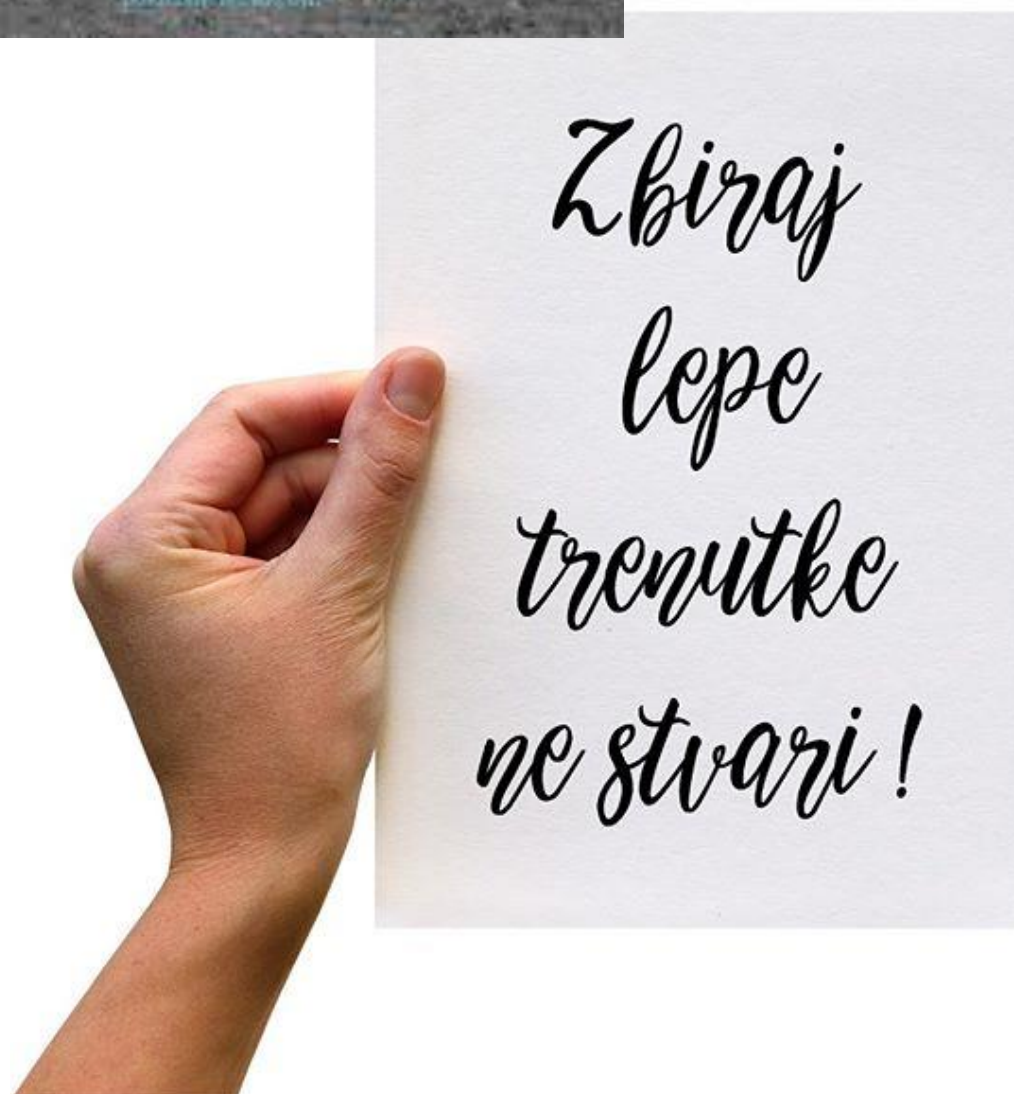 Zbiraj
lepe
trenutke
ne stvari !